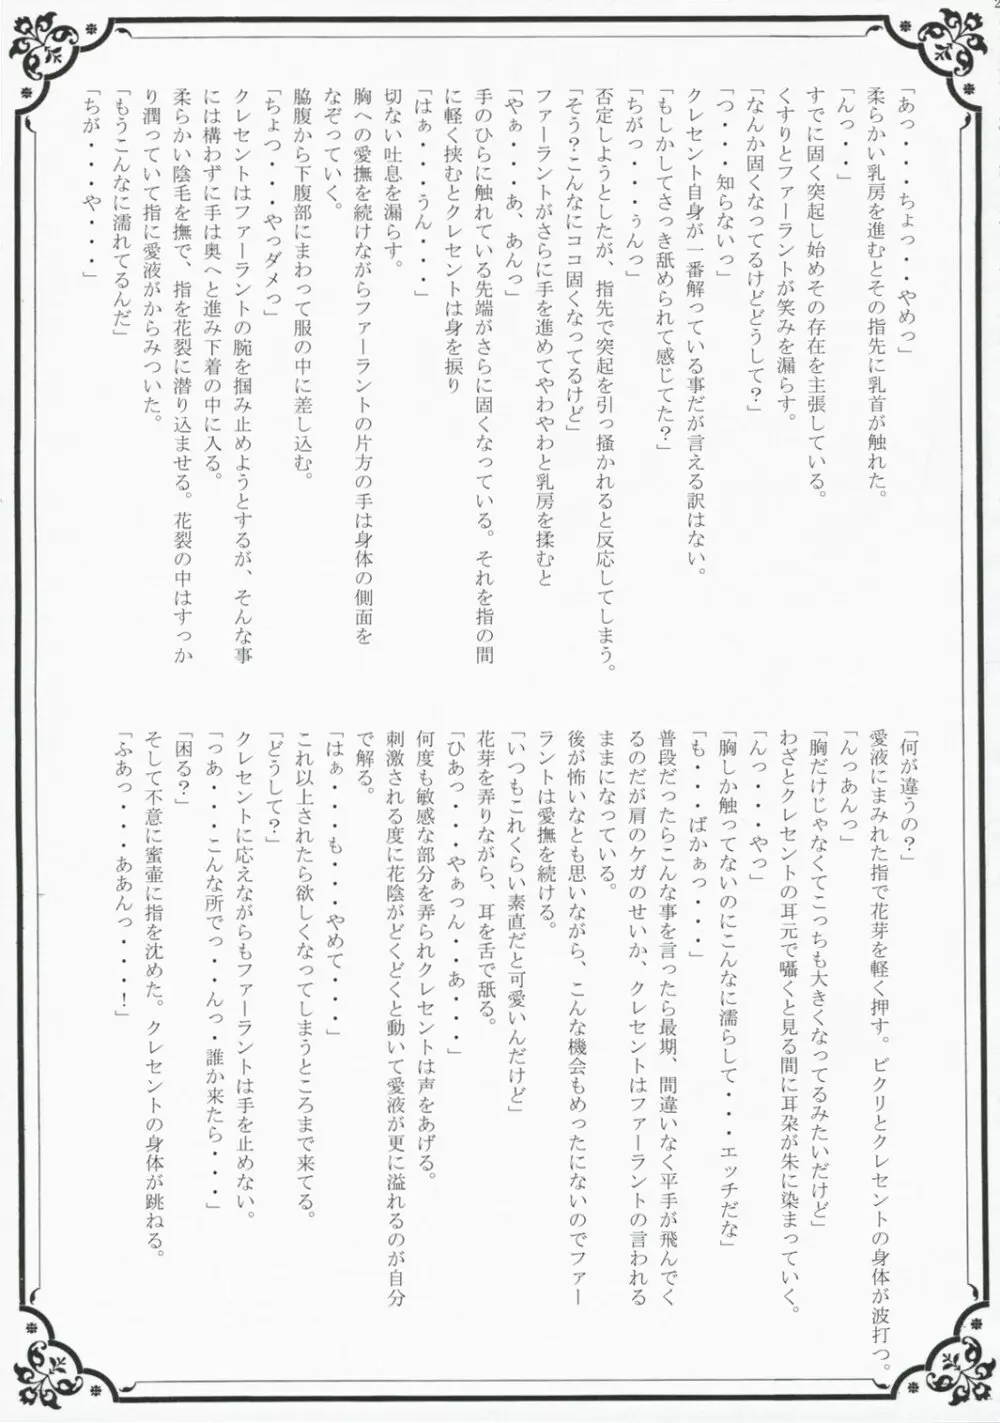 「あっ・・・ちょっ・・やめっ」
柔らかい乳房を進むとその指先に乳首が触れた。
「んっ・・」
すでに固く突起し始めその存在を主張している。
くすりとファーラントが笑みを漏らす。
「なんか固くなってるけどどうして？」
「つ・・・知らないっ」
クレセント自身が一番解っている事だが言える訳はない。
「もしかしてさっき舐められて感じてた？」
「ちがっ・・・ぅんっ」
否定しようとしたが、指先で突起を引っ掻かれると反応してしまう。
「そう？こんなにココ固くなってるけど」
ファーラントがさらに手を進めてやわやわと乳房を揉むと
「やぁ・・・あ、あんっ」
手のひらに触れている先端がさらに固くなっている。それを指の間
に軽く挟むとクレセントは身を捩り
「はぁ・・・うん・・・」
切ない吐息を漏らす。
胸への愛撫を続けながらファーラントの片方の手は身体の側面を
なぞっていく。
脇腹から下腹部にまわって服の中に差し込む。
「ちょっ・・・やっダメっ」
クレセントはファーラントの腕を掴み止めようとするが、そんな事
には構わずに手は奥へと進み下着の中に入る。
柔らかい陰毛を撫で、指を花裂に潜り込ませる。花裂の中はすっか
り潤っていて指に愛液がからみついた。
「もうこんなに濡れてるんだ」
「ちが・・・や・・・」
「何が違うの？」
愛液にまみれた指で花芽を軽く押す。ビクリとクレセントの身体が波打つ。
「んっあんっ」
「胸だけじゃなくてこっちも大きくなってるみたいだけど」
わざとクレセントの耳元で囁くと見る間に耳朶が朱に染まっていく。
「んっ・・・やっ」
「胸しか触ってないのにこんなに濡らして・・・エッチだな」
「も・・・ばかぁっ・・・」
普段だったらこんな事を言ったら最期、間違いなく平手が飛んでく
るのだが肩のケガのせいか、クレセントはファーラントの言われる
ままになっている。
後が怖いなとも思いながら、こんな機会もめったにないのでファー
ラントは愛撫を続ける。
「いつもこれくらい素直だと可愛いんだけど」
花芽を弄りながら、耳を舌で舐る。
「ひあっ・・・やぁっん・・あ・・・」
何度も敏感な部分を弄られクレセントは声をあげる。
刺激される度に花陰がどくどくと動いて愛液が更に溢れるのが自分
で解る。
「はぁ・・・も・・・やめて・・・」
これ以上されたら欲しくなってしまうところまで来てる。
「どうして？」
クレセントに応えながらもファーラントは手を止めない。
「っあ・・・こんな所でっ・・んっ・誰か来たら・・・」
「困る？」
そして不意に蜜壷に指を沈めた。クレセントの身体が跳ねる。
「ふあっ・・・ああんっ・・・！」